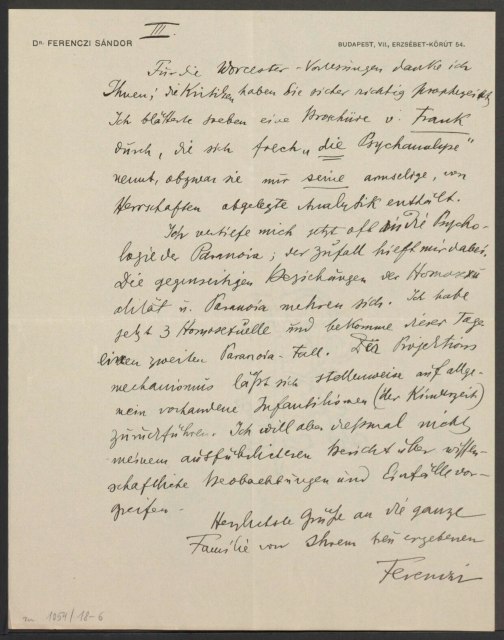 III.
Dr. FERENCZI SÁNDOR
BUDAPEST, VII., ERZSÉBET-KÖRÚT 54.
Für die Worcester-Vorlesungen danke ich
Ihnen; die Kritiken haben Sie sicher richtig prophezeit.
Ich blätterte soeben eine Broschüre v. Frank
durch, die sich frech „die Psychanalyse"
nennt, obzwar sie nur seine armselige, von
Herrschaften abgelegte Analytik enthält.
Ich vertiefe mich jetzt oft in die Psycho-
logie der Paranoia; der Zufall hilft mir dabei.
Die gegenseitigen Beziehungen der Homosexu
alität u. Paranoia mehren sich. Ich habe
jetzt 3 Homosexuelle und bekomme dieser Tage
einen zweiten Paranoia-Fall. Der Projektions
mechanismus läßt sich stellenweise auf allge-
mein vorhandene Infantilismen (der Kinderzeit)
zurückführen. Ich will aber diesmal nicht
meinem ausführlicheren Bericht über wissen-
schaftliche Beobachtungen und Einfälle vor-
greifen.
Herzlichste Grüße an die ganze
Familie von Ihrem treu ergebenen
Ferenczi
1054/18-6